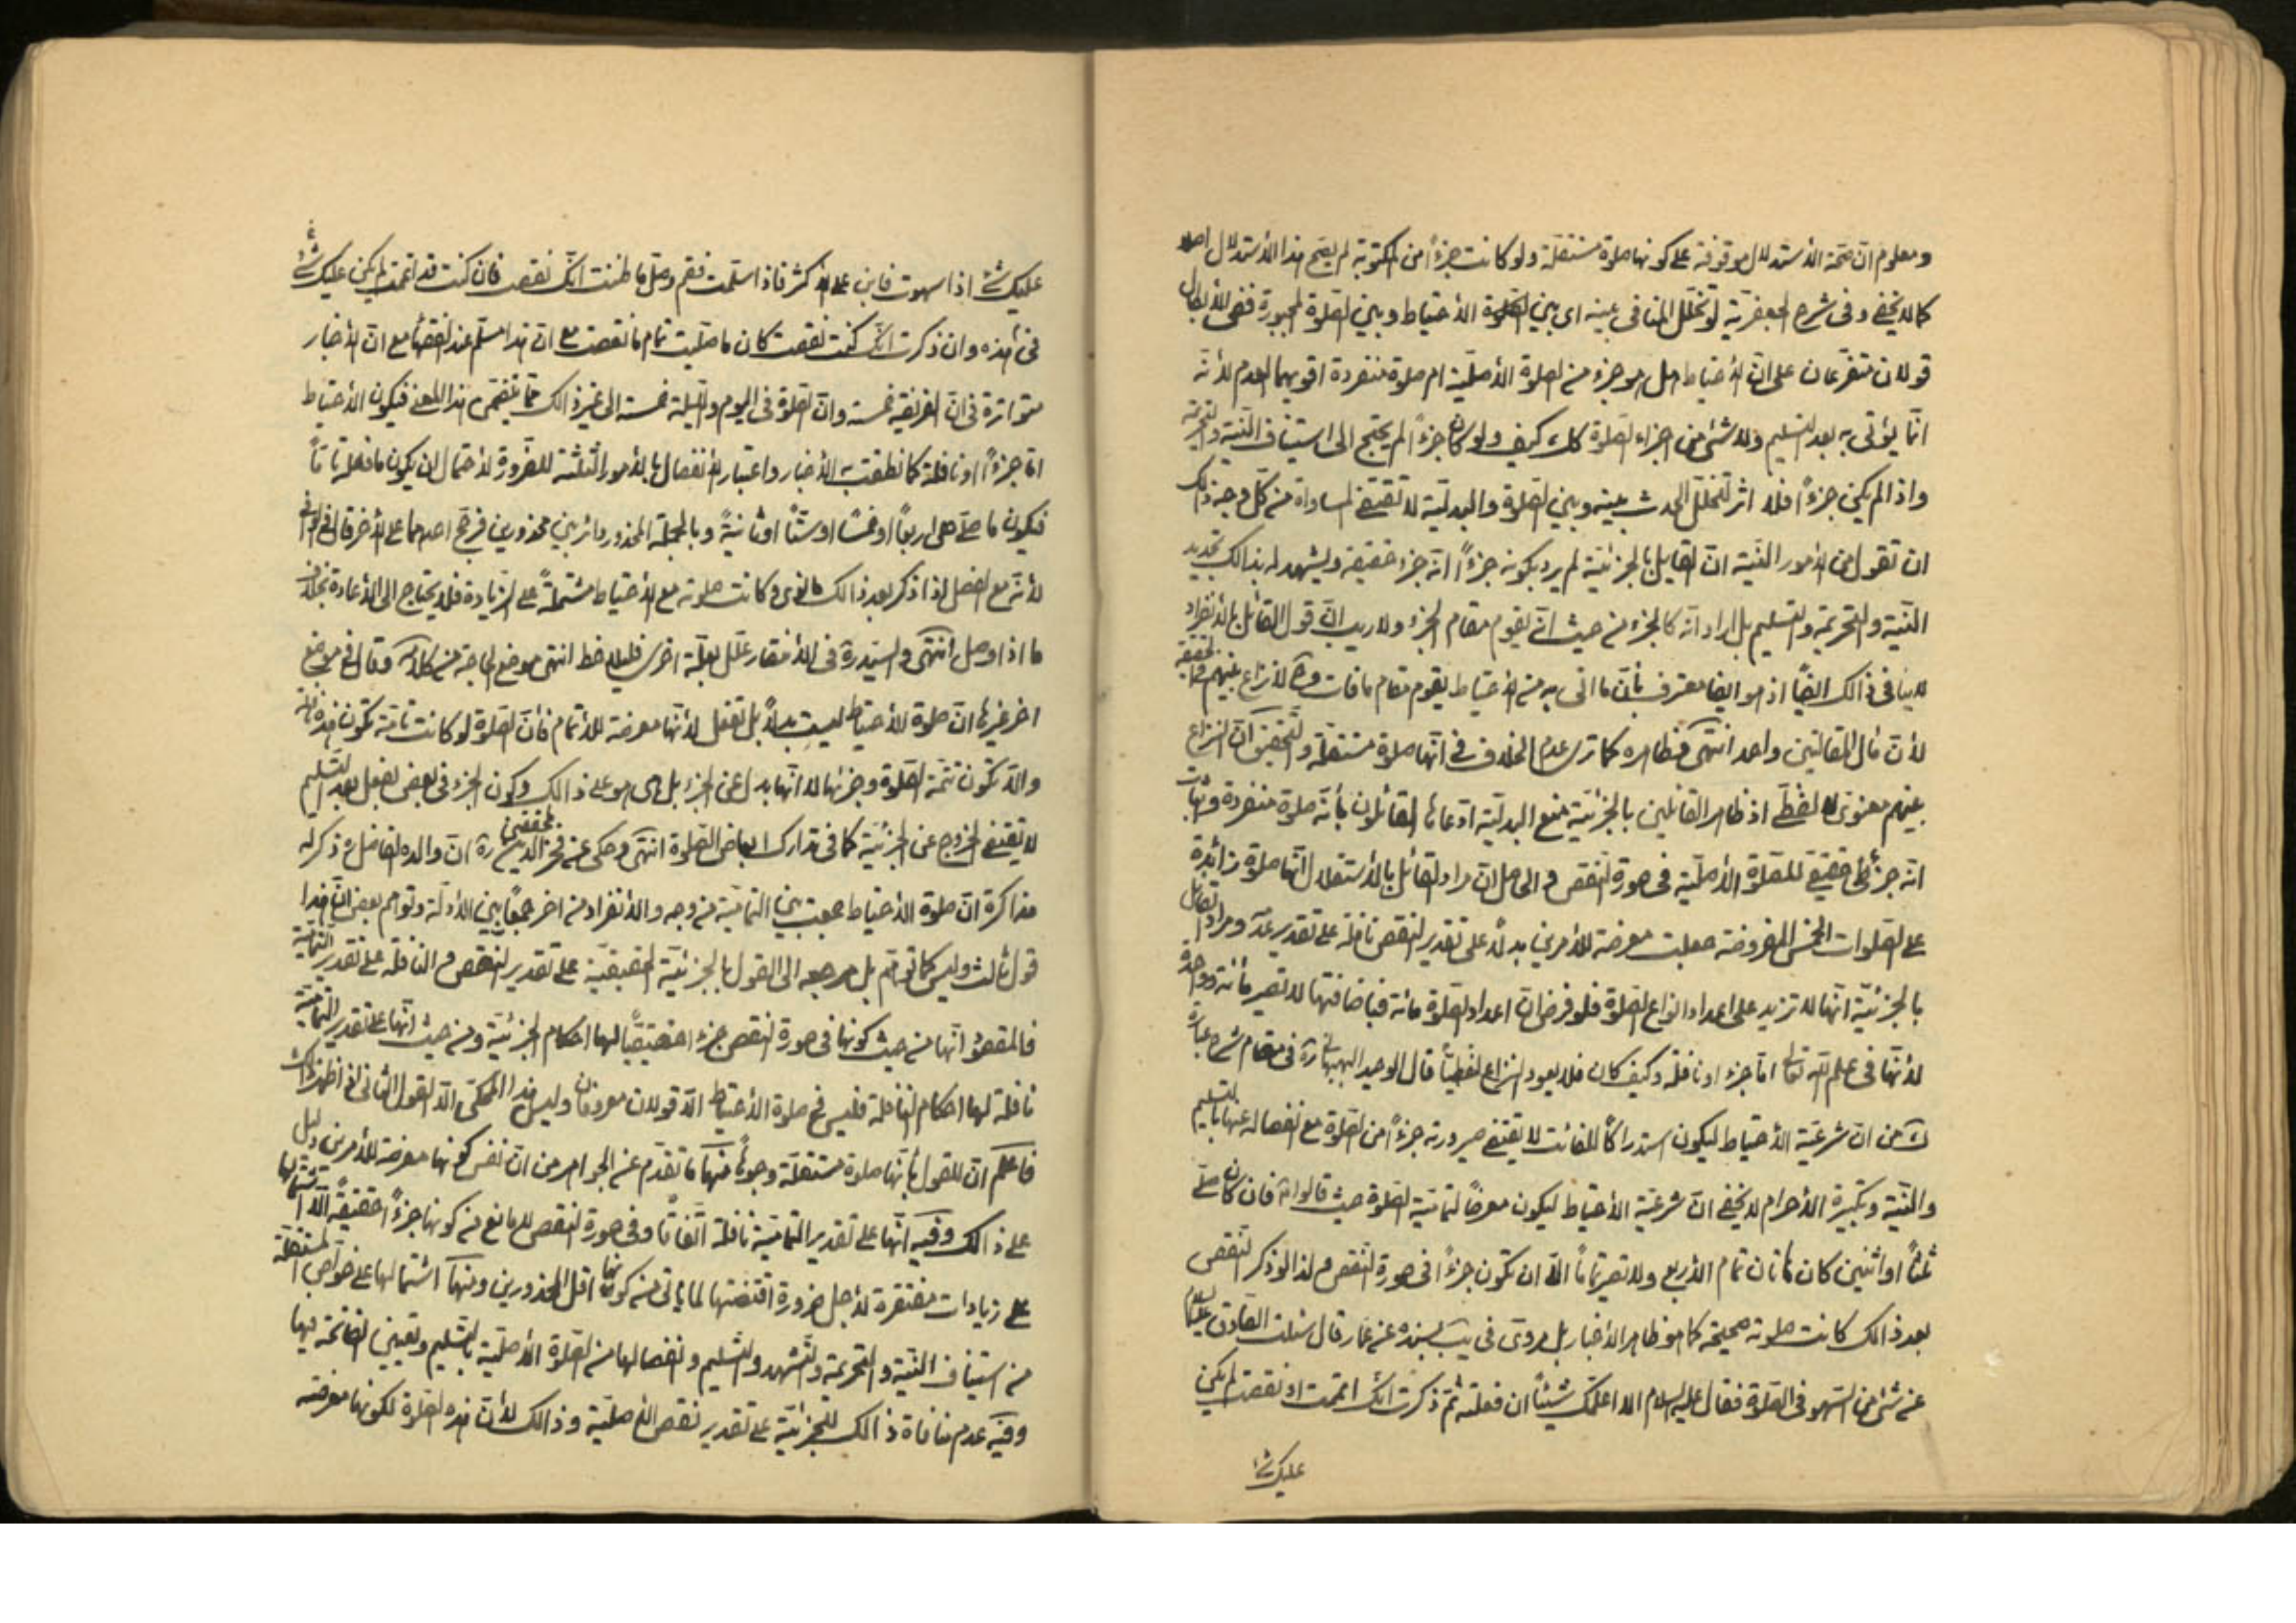 ومعلوم ان صحة الاستدلال موقوفة على كونها صلوة مستقلة ولو كانت جزءاً من المكتوبة لم يصح هذا الاستدلال اصلا
كما لا يخفى وفى شرح الجعفرية لو تخلل المنافى بينه اى بين الصلوة الاحتياط وبين الصلوة المجبورة ففى الابطال
قولان متفرعان على ان الاحتياط هل هو جزء من الصلوة الاصلية ام صلوة منفردة اقويهما العدم لانه
انما يؤتى به بعد التسليم ولا شئ من اجزاء الصلوة كك كيف ولو كان جزءاً لم يحتج الى استيناف النية والتحريمة
واذا لم يكن جزءاً فلا اثر لتخلل الحدث بينه وبين الصلوة والبدلية لا تقتضى المساواة من كل وجه ذلك
ان تقول من الامور البينة ان القايل بالجزئية لم يرد بكونه جزءاً انه جزء حقيقة ويشهد له بذالك تجديد
النية والتحريمة والتسليم بل اراد انه كالجزء من حيث انه يقوم مقام الجزء ولا ريب ان قول القائل بالانفراد
لا ينافى ذالك ايضاً اذ هو ايضا معترف بان ما اتى به من الاحتياط يقوم مقام ما فات وح لا نزاع بينهم فى الحقيقة
لان مال المقالتين واحد انتهى فظاهره كما ترى عدم الخلاف فى انها صلوة مستقلة والتحقيق ان النزاع
بينهم معنوى لا لفظى اذ ظاهر القائلين بالجزئية منع البدلية ادعاها القائلون بانه صلوة منفردة واثبات
انه جزء حقيقى للصلوة الاصلية فى صورة النقص والحاصل ان مراد القائل بالاستقلال انها صلوة زائدة
على الصلوات الخمس المفروضة جعلت معرضة للامرين بدلا على تقدير النقص نافلة على تقدير عدمه ومراد القائل
بالجزئية انها لا تزيد على اعداد انواع الصلوة فلو فرض ان اعداد الصلوة مائة فباضافتها لا تصير مائة وواحدة
لانها فى علم الله تعالى اما جزء او نافلة وكيف كان فلا يعود النزاع لفظياً قال الوحيد البهبهانى ره فى مقام شرح عبارة
ك من ان شرعية الاحتياط ليكون استدراكاً للفائت لا يقتضى صيرورته جزءاً من الصلوة مع انفصاله عنها بالتسليم
والنية وتكبيرة الاحرام لا يخفى ان شرعية الاحتياط ليكون معرضاً لتمامية الصلوة حيث قالوا ع فان كان صلى
ثلثاً او اثنتين كان هاتان تمام الاربع ولا تصير تماماً الا ان تكون جزءاً فى صورة النقص ولذا لو ذكر النقص
بعد ذالك كانت صلوته صحيحة كما هو ظاهر الاخبار بل مروى فى يب بسنده عن عمار قال سئلت الصادق عليه السلام
عن شئ من السهو فى الصلوة فقال عليه السلام الا اعلمك شيئاً ان فعلته ثم ذكرت انك اتممت او نقصت لم يكن
عليك شئ
عليك شئ اذا سهوت فابن على الاكثر فاذا سلمت فقم وصل ما ظننت انك نقصت فان كنت قد اتممت لم يكن عليك شئ
فى هذه وان ذكرت انك كنت نقصت كان ما صليت تمام ما نقصت مع ان هذا مسلم عند الفقهاء مع ان الاخبار
متواترة فى ان الفريضة خمسة وان الصلوة فى اليوم والليلة خمسة الى غير ذالك مما تضمن هذا المعنى فيكون الاحتياط
اما جزءاً او نافلة كما نطقت به الاخبار واعتبار الانفصال بالامور الثلثة للضرورة لاحتمال ان يكون ما فعله تاماً
فيكون ما صلى اربعاً او خمساً او ستاً او ثمانية وبالجملة المحذور دائر بين محذورين فرجح احدهما على الاخر قال فى الوافى
لانه مع الفصل اذا ذكر بعد ذالك ما نوى وكانت صلوته مع الاحتياط مشتملة على الزيادة فلا يحتاج الى الاعادة بخلاف
ما اذا وصل انتهى والسيد ره فى الانتصار علل بعلة اخرى فليلاحظ انتهى موضع الحاجة من كلامه وقال فى موضع
اخر غيرها ان صلوة الاحتياط ليست بدلاً بل تفعل لانها معرضة للاتمام فان الصلوة لو كانت تامة تكون هذه نافلة
والا تكون تتمة الصلوة وجزئها لا انها بدل عن الجزء بل هى هو على ذالك وكون الجزء فى بعض يفعل بعد التسليم
لا يقتضى الخروج عن الجزئية كما فى تدارك ابعاض الصلوة انتهى وحكى عن فخر المحققين ره ان والده الفاضل ره ذكر له
مذاكرة ان صلوة الاحتياط جمعت بين التمامية من وجه والانفراد من اخر جمعاً بين الادلة وتوهم بعض ان هذا
قول ثالث وليس كما توهم بل مرجعه الى القول بالجزئية الحقيقية على تقدير النقص والنافلة على تقدير التمامية
فالمقصود انها من حيث كونها فى صورة النقص جزء حقيقياً لها احكام الجزئية ومن حيث انها على تقدير التمامية
نافلة لها احكام النافلة فليس فى صلوة الاحتياط الا قولان معروفان وليس هذا المحكى الا القول الثانى اذا ظهر ذلك
فاعلم ان للقول بانها صلوة مستقلة وجوهاً منها ما تقدم عن الجواهر من ان نفس كونها معرضة للامرين دليل
على ذالك وفيه انها على تقدير التمامية نافلة اتفاقا وفى صورة النقص لا مانع من كونها جزءاً حقيقة الا اشتمالها
على زيادات مغتفرة لاجل ضرورة اقتضتها لما ياتى من كونها اقل المحذورين ومنها اشتمالها على خواص المستقلة
من استيناف النية والتحريمة والتشهد والتسليم وانفصالها من الصلوة الاصلية بالتسليم وتعيين الفاتحة فيها
وفيه عدم منافاة ذالك للجزئية على تقدير نقص الاصلية وذالك لان هذه الصلوة لكونها معرضة